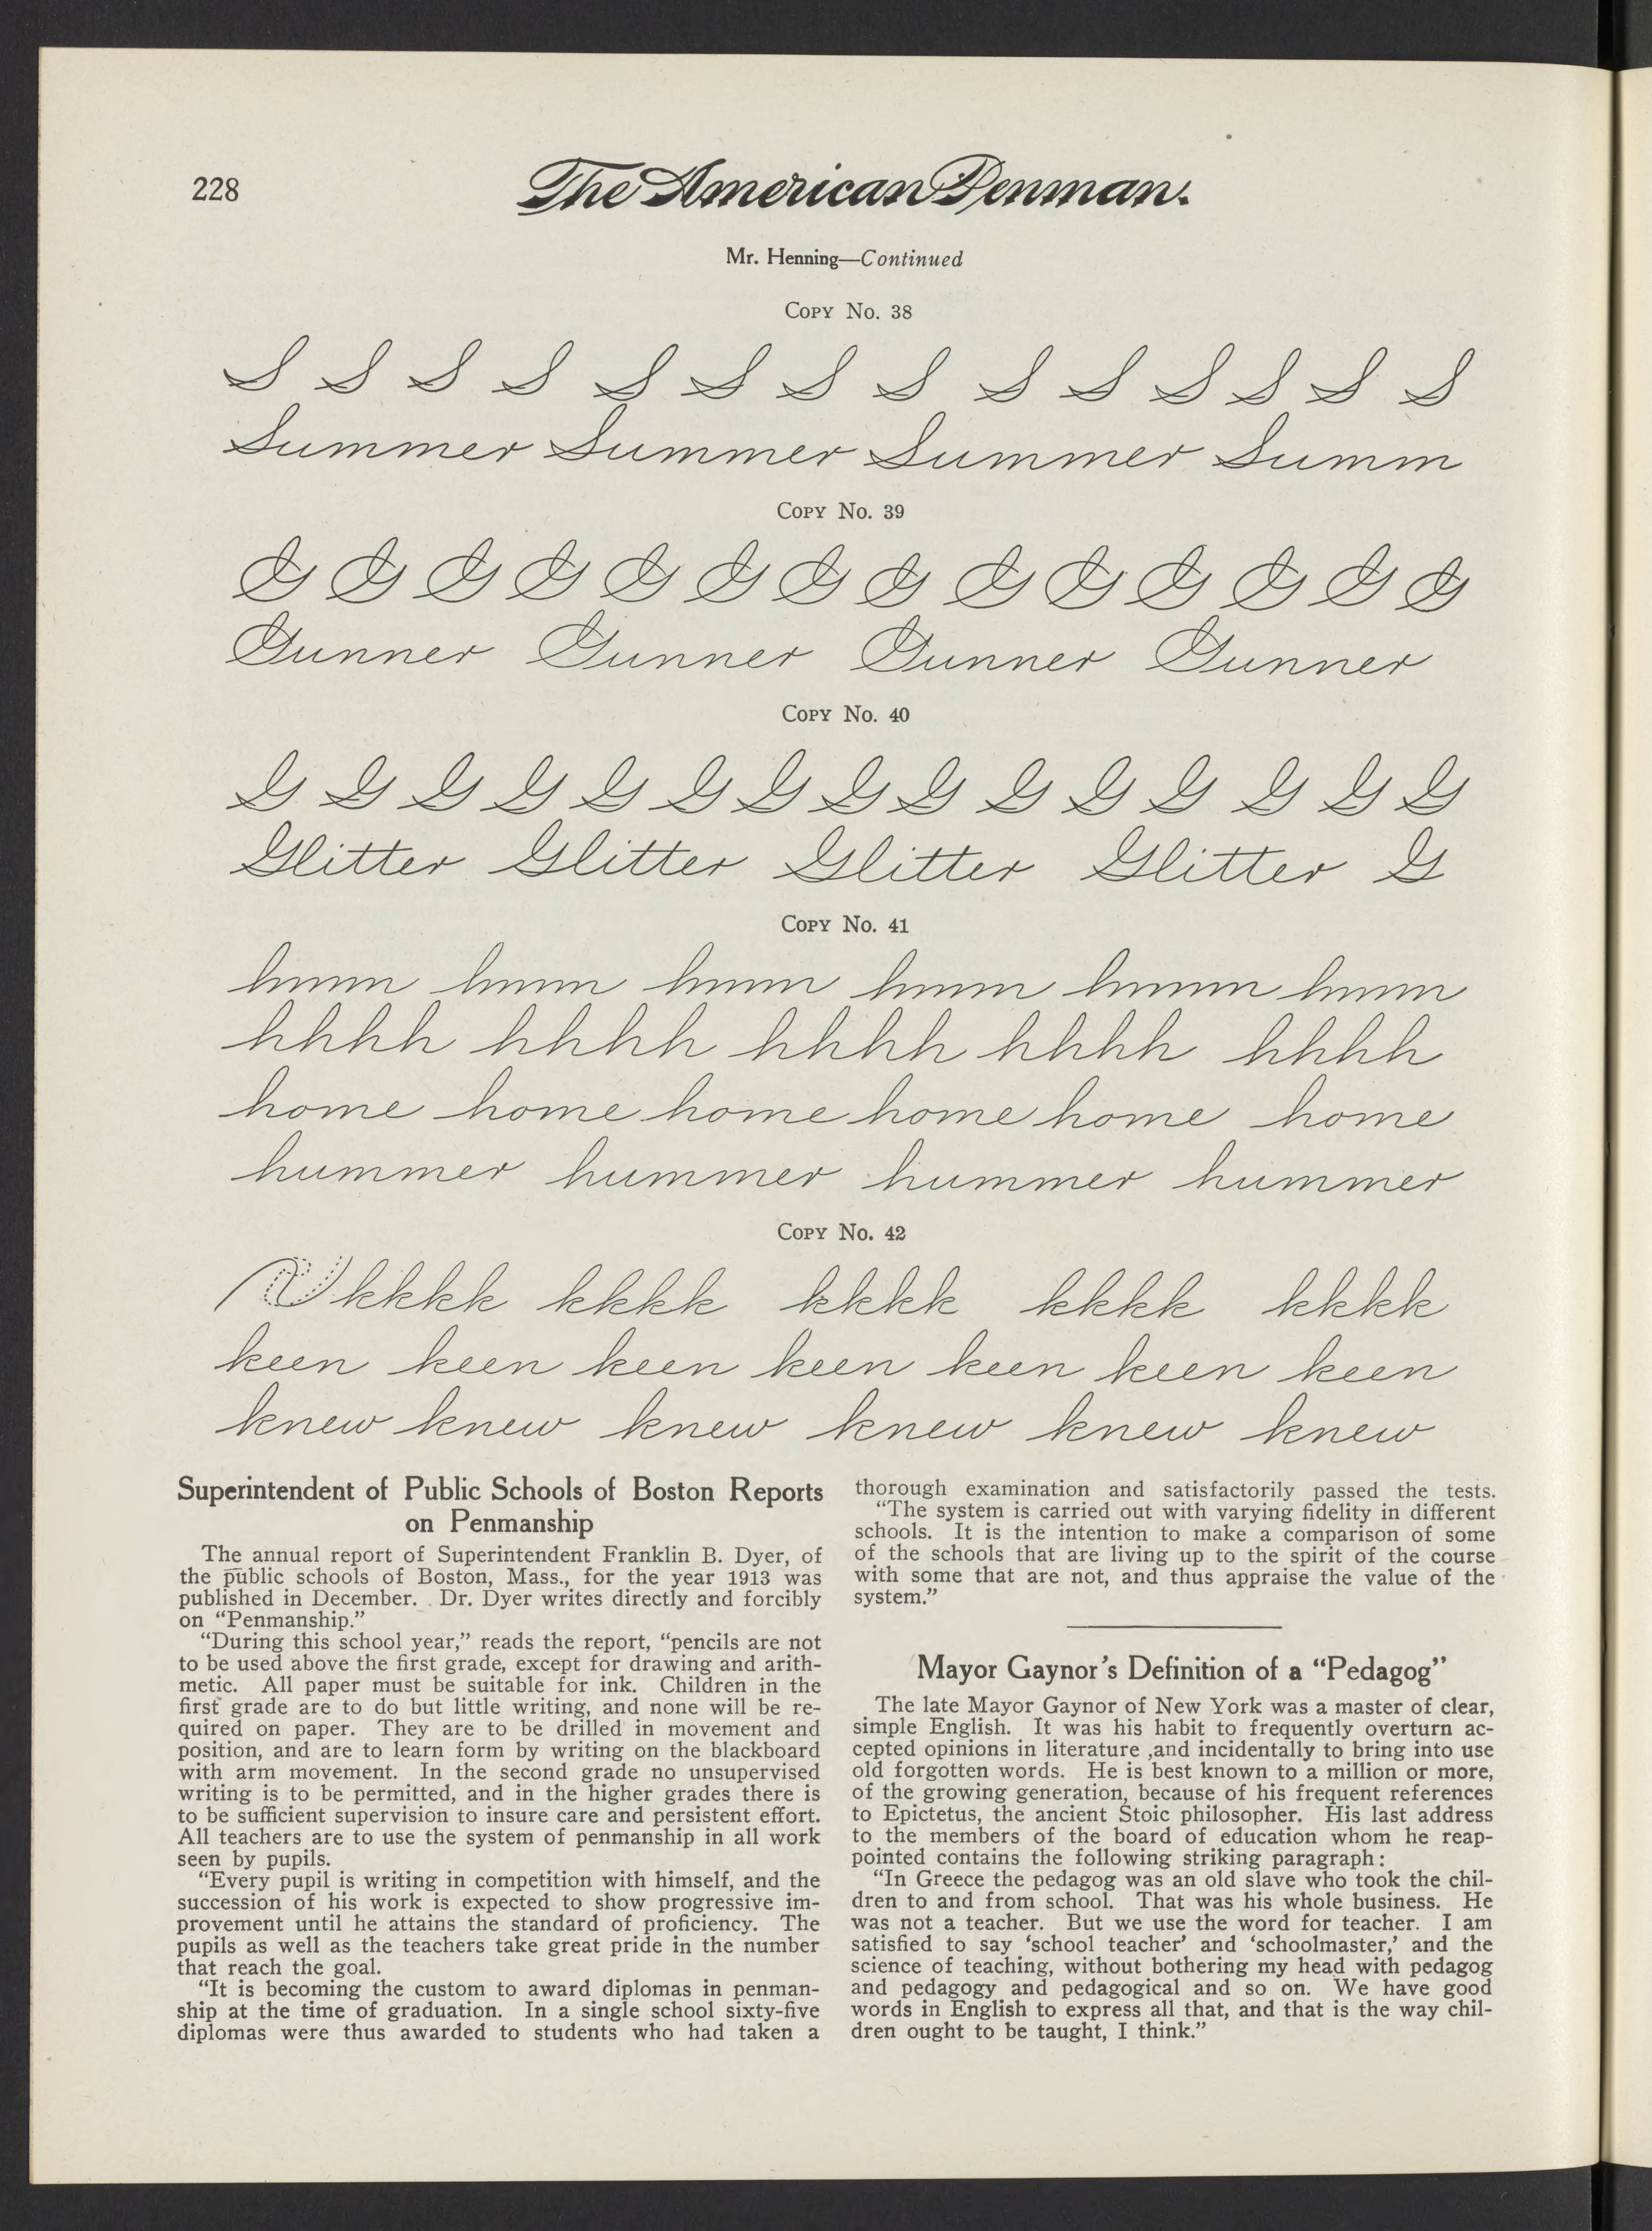 228
The American Penman.
Mr. Henning—Continued
Copy No. 38
S S S S S S S S S S S S S S
Summer Summer Summer Summ
Copy No. 39
G G G G G G G G G G G G G G
Gunner Gunner Gunner Gunner
Copy No. 40
G G G G G G G G G G G G G G G
Glitter Glitter Glitter Glitter G
Copy No. 41
hhhh hhhh hhhh hhhh hhhh
home home home home home home
hummer hummer hummer hummer
Copy No. 42
kkkk kkkk kkkk kkkk kkkk
keen keen keen keen keen keen keen
knew knew knew knew knew knew
Superintendent of Public Schools of Boston Reports
on Penmanship
The annual report of Superintendent Franklin B. Dyer, of
the public schools of Boston, Mass., for the year 1913 was
published in December. Dr. Dyer writes directly and forcibly
on “Penmanship.”
“During this school year,” reads the report, “pencils are not
to be used above the first grade, except for drawing and arith-
metic. All paper must be suitable for ink. Children in the
first grade are to do but little writing, and none will be re-
quired on paper. They are to be drilled in movement and
position, and are to learn form by writing on the blackboard
with arm movement. In the second grade no unsupervised
writing is to be permitted, and in the higher grades there is
to be sufficient supervision to insure care and persistent effort.
All teachers are to use the system of penmanship in all work
seen by pupils.
“Every pupil is writing in competition with himself, and the
succession of his work is expected to show progressive im-
provement until he attains the standard of proficiency. The
pupils as well as the teachers take great pride in the number
that reach the goal.
“It is becoming the custom to award diplomas in penman-
ship at the time of graduation. In a single school sixty-five
diplomas were thus awarded to students who had taken a
thorough examination and satisfactorily passed the tests.
“The system is carried out with varying fidelity in different
schools. It is the intention to make a comparison of some
of the schools that are living up to the spirit of the course
with some that are not, and thus appraise the value of the
system.”
Mayor Gaynor’s Definition of a “Pedagog”
The late Mayor Gaynor of New York was a master of clear,
simple English. It was his habit to frequently overturn ac-
cepted opinions in literature ,and incidentally to bring into use
old forgotten words. He is best known to a million or more,
of the growing generation, because of his frequent references
to Epictetus, the ancient Stoic philosopher. His last address
to the members of the board of education whom he reap-
pointed contains the following striking paragraph:
“In Greece the pedagog was an old slave who took the chil-
dren to and from school. That was his whole business. He
was not a teacher. But we use the word for teacher. I am
satisfied to say ‘school teacher’ and ‘schoolmaster,’ and the
science of teaching, without bothering my head with pedagog
and pedagogy and pedagogical and so on. We have good
words in English to express all that, and that is the way chil-
dren ought to be taught, I think.”